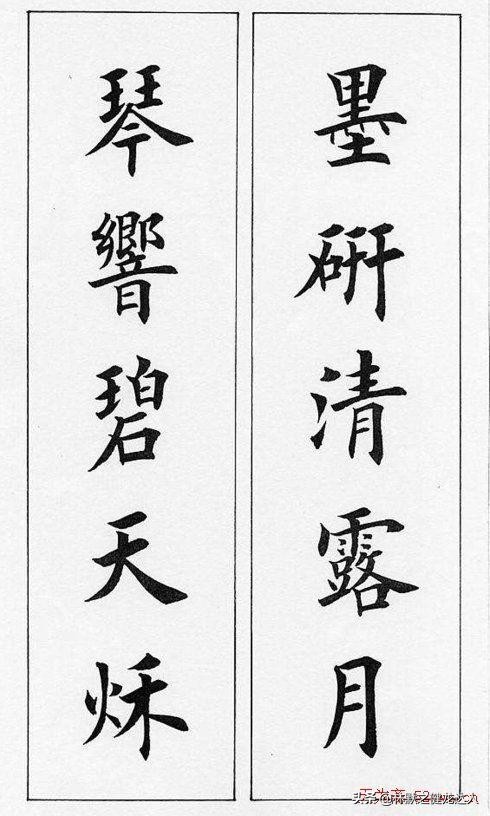 墨研清露月
琴響碧天秌